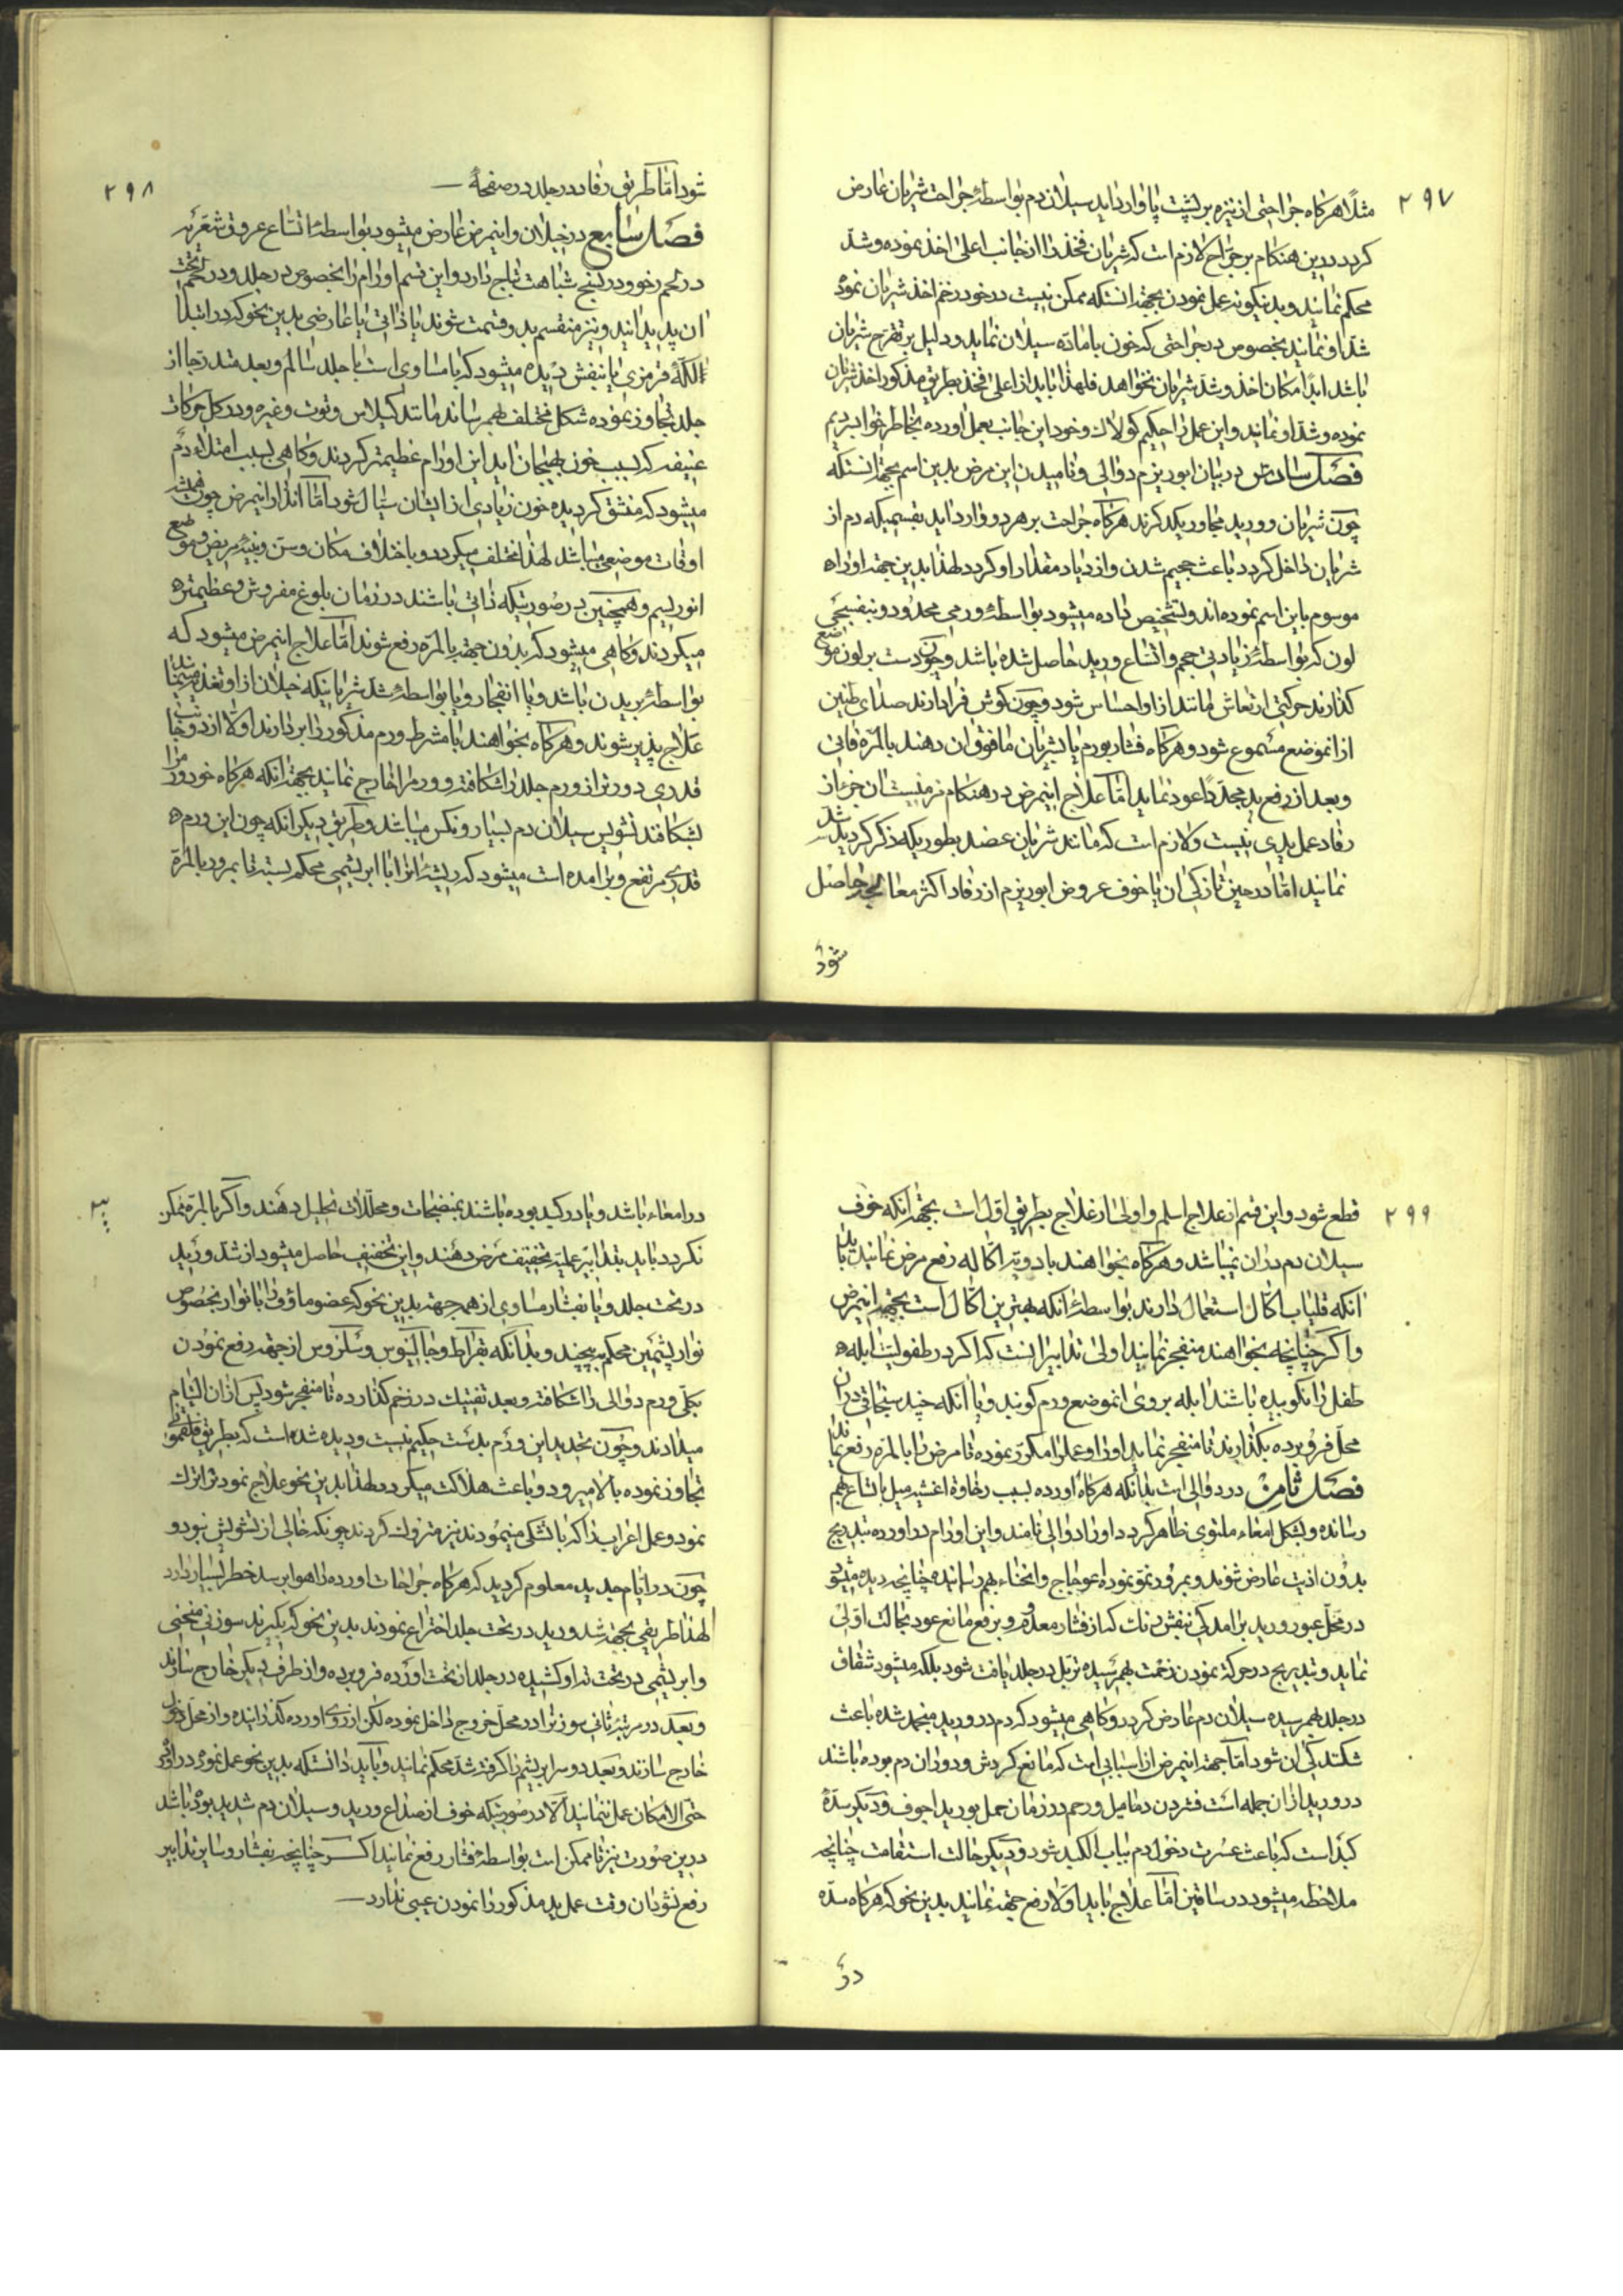 ۲۹۷
مثلاً هرکاه جراحتی از نیزه بر پشت پا وارد اید سیلان دم بواسطهٔ جراحت شریان عارض
کردد درین هنکام بر جراح لازم است که شریان فخذ را از جانب اعلی اخذ نموده و شد
محکم نمایند و بدینکونه عمل نمودن بجهة انستکه ممکن نیست در خود زخم اخذ شریان نموده
شد او نمایند بخصوص در جراحتی که خون با ماده سیلان نماید و دلیل بر تقرح شریان
باشد ابداً امکان اخذ و شد شریان نخواهد فلهذا باید از اعلی فخذ بطریق مذکور اخذ شریان
نموده و شد او نمایند و این عمل را حکیم کولات و خود این جانب بعمل اورده بخاطر خوا
فصل سادس در بیان ابوریزم دوالی و نامیدن این مرض بدین اسم بجهة انستکه
چون شریان و ورید مجاور یکدکرند هرکاه جراحت بر هر دو وارد اید بقسمیکه دم از
شریان داخل کردد باعث حجیم شدن و ازدیاد مقدار او کردد لهذا بدین جهة او را
موسوم باین اسم نموده اند و تشخیص داده میشود بواسطهٔ ورمی محدود و بنفسجی
لون که بواسطهٔ زیادتی حجم و اتساع ورید حاصل شده باشد و چون دست بر اون موضع
کذارند حرکتی ارتعاش مانند از او احساس شود و چون کوش فرا دارند صدای طنین
از انموضع مسموع شود و هرکاه فشار بورم یا بشریان مافوق ان دهند بالمرة فانی
و بعد از رفع ید مجدداً عود نماید اما علاج اینمرض در هنکام مزمنیت ان جز از
رفاد عمل یدی نیست و لازم است که مانند شریان عضد بطوریکه ذکر کردید شد
نمایند اما در حین تازکی ان یا خوف عروض ابوریزم از رفاد اکثر معالجه حاصل
شود
۲۹۸
شود اما طریق رفاد در جلد در صفحهٔ —
فصل سابع در خیلان و اینمرض عارض میشود بواسطهٔ اتساع عروق شعریه
در لحم رخو و در نسج شباهت بتاج دارد و این قسم اورام را بخصوص در جلد و در لحم تحت
ان پدید ایند و نیز منقسم بدو قسمت شوند یا ذاتی یا عارضی بدین نحو که در ابتدا
لکهٔ قرمزی یا بنفش دیده میشود که یا مساوی است با جلد سالم و بعد متدرجا از
جلد تجاوز نموده شکل مختلف بهم رساند مانند کیلاس و توت و غیره و در کل حرکات
عنیفه که بسبب خون بهیجان اید این اورام عظیمتر کردند و کاهی بسبب امتلاء دم
میشود که منشق کردیده خون زیادی از ایشان سیال شود اما انذار اینمرض چون همیشه
اوقات موضعی میباشد لهذا مختلف میکردد باختلاف مکان و سن و بنیهٔ مریض و موضع
انوریسم و همچنین در صورتیکه ذاتی باشند در زمان بلوغ مفروش و عظیمتر
میکردند و کاهی میشود که بدون جهة بالمره رفع شوند اما علاج اینمرض میشود که
بواسطهٔ بریدن باشد و یا انفجار و یا بواسطهٔ شد شریانیکه خیلان از او تغذیه مینمایند
علاج پذیر شوند و هرکاه بخواهند با مشرط ورم مذکور را بردارند اولا از دو جانب
قدری دورتر از ورم جلد را شکافته و ورم را خارج نمایند بجهة انکه هرکاه خود ورم را
بشکافند تشویس سیلان دم بسیار و نکس میباشد و طریق دیکر انکه چون این ورم
قدری مرتفع و برامده است میشود که ریشهٔ انرا با ابریشمی محکم بسته تا بمرور بالمرة
۲۹۹
قطع شود و این قسم از علاج اسلم و اولی از علاج بطریق اول است بجهة انکه خوف
سیلان دم در ان نمیباشد و هرکاه بخواهند بادویهٔ اکاله رفع مرض نمایند باید
انکه قلیاب اکال استعمال دارند بواسطهٔ انکه بهترین اکال است بجهة اینمرض
و اکر چنانچه بخواهند منفجر نمایند اولی تدابیر انست که اکر در طفولیت ابله
طفل را نکوبیده باشند ابله بروی انموضع ورم کوبند و یا انکه چند سنجاقی در ان
محل فرو برده بکذارند تا منفجر نماید او را و عمل را مکرر نموده تا مرض را بالمرة رفع نماید
فصل ثامن در دوالی است بدانکه هرکاه اورده بسبب رخاوة اغشیه میل باتساع بهم
رسانده و بشکل امعاء ملتوی ظاهر کردد او را دوالی نامند و این اورام در اورده بتدریج
بدون اذیت عارض شوند و بمرور نمو نموده اعوجاج و انحناء بهم رسانیده چنانچه دیده میشود
در محل عبور ورید برامدکی بنفش رنک که از فشار معدوم و برفع مانع عود بحالت اولی
نماید و بتدریج در حرکة نمودن زحمت بهم رسیده تزبل در جلد یافت شود بلکه میشود شقاق
در جلد بهم رسیده سیلان دم عارض کردد و کاهی میشود که دم در ورید منجمد شده باعث
شکنندکی ان شود اما جهة اینمرض از اسبابی است که مانع کردش و دوران دم بوده باشند
در ورید از ان جمله است فشردن دمامیل و رحم در زمان حمل بورید اجوف و دیکر سدهٔ
کبد است که باعث عسرت دخول دم بباب الکبد شود و دیکر حالت استقامت چنانچه
ملاحظه میشود در ساقین اما علاج باید اولا رفع جهة نمایند بدین نحو که هرکاه سده
در
در امعاء باشد و یا در کبد بوده باشند بمنضجات و محللات تحلیل دهند و اکر بالمرة ممکن
نکردد باید بتدابیر عملیه تخفیف مرض دهند و این تخفیف حاصل میشود از شد ورید
در تحت جلد و یا بفشار مساوی از همه جهة بدین نحو که عضو ماؤف را با نوار بخصوص
نوار پشمین محکم بپیچند و بدانکه بقراط و جالینوس و سلزوس از جهة رفع نمودن
بکلی ورم دوالی را شکافته و بعد تفتیک در زخم کذارده تا منفجر شود پس از ان التیام
میدادند و چون تحدید این ورم بدست حکیم نیست و دیده شده است که بطریق فلغمونی
تجاوز نموده بالا میرود و باعث هلاکت میکردد لهذا بدین نحو علاج نمودنرا ترک
نمود و عمل اعراب را که باتشکی مینمودند نیز متروک کردند چونکه خالی از تشویش نبود و
چون در ایام جدید معلوم کردید که هرکاه جراحات اورده را هوا برسد خطر بسیار دارد
لهذا طریقی بجهة شد ورید در تحت جلد اختراع نمودند بدین نحو که بکیرند سوزنی منحنی
و ابریشمی در تحت ته او کشیده در جلد از تحت اورده فرو برده و از طرف دیکر خارج سازند
و بعد در مرتبهٔ ثانی سوزنرا در محل خروج داخل نموده لکن از روی اورده کذرانیده و از محل دخول
خارج سازند و بعد دو سر ابریشم را کرفته شد محکم نمایند و باید دانستکه بدین نحو عمل نمودن در اورده
حتی الامکان عمل ننمایند الا در صورتیکه خوف از صداع ورید و سیلان دم شدید بوده باشد
درین صورت نیز تا ممکن است بواسطهٔ فشار رفع نمایند اکر چنانچه بفشار و سایر تدابیر
رفع نشود ان وقت عمل ید مذکور را نمودن عیبی ندارد —